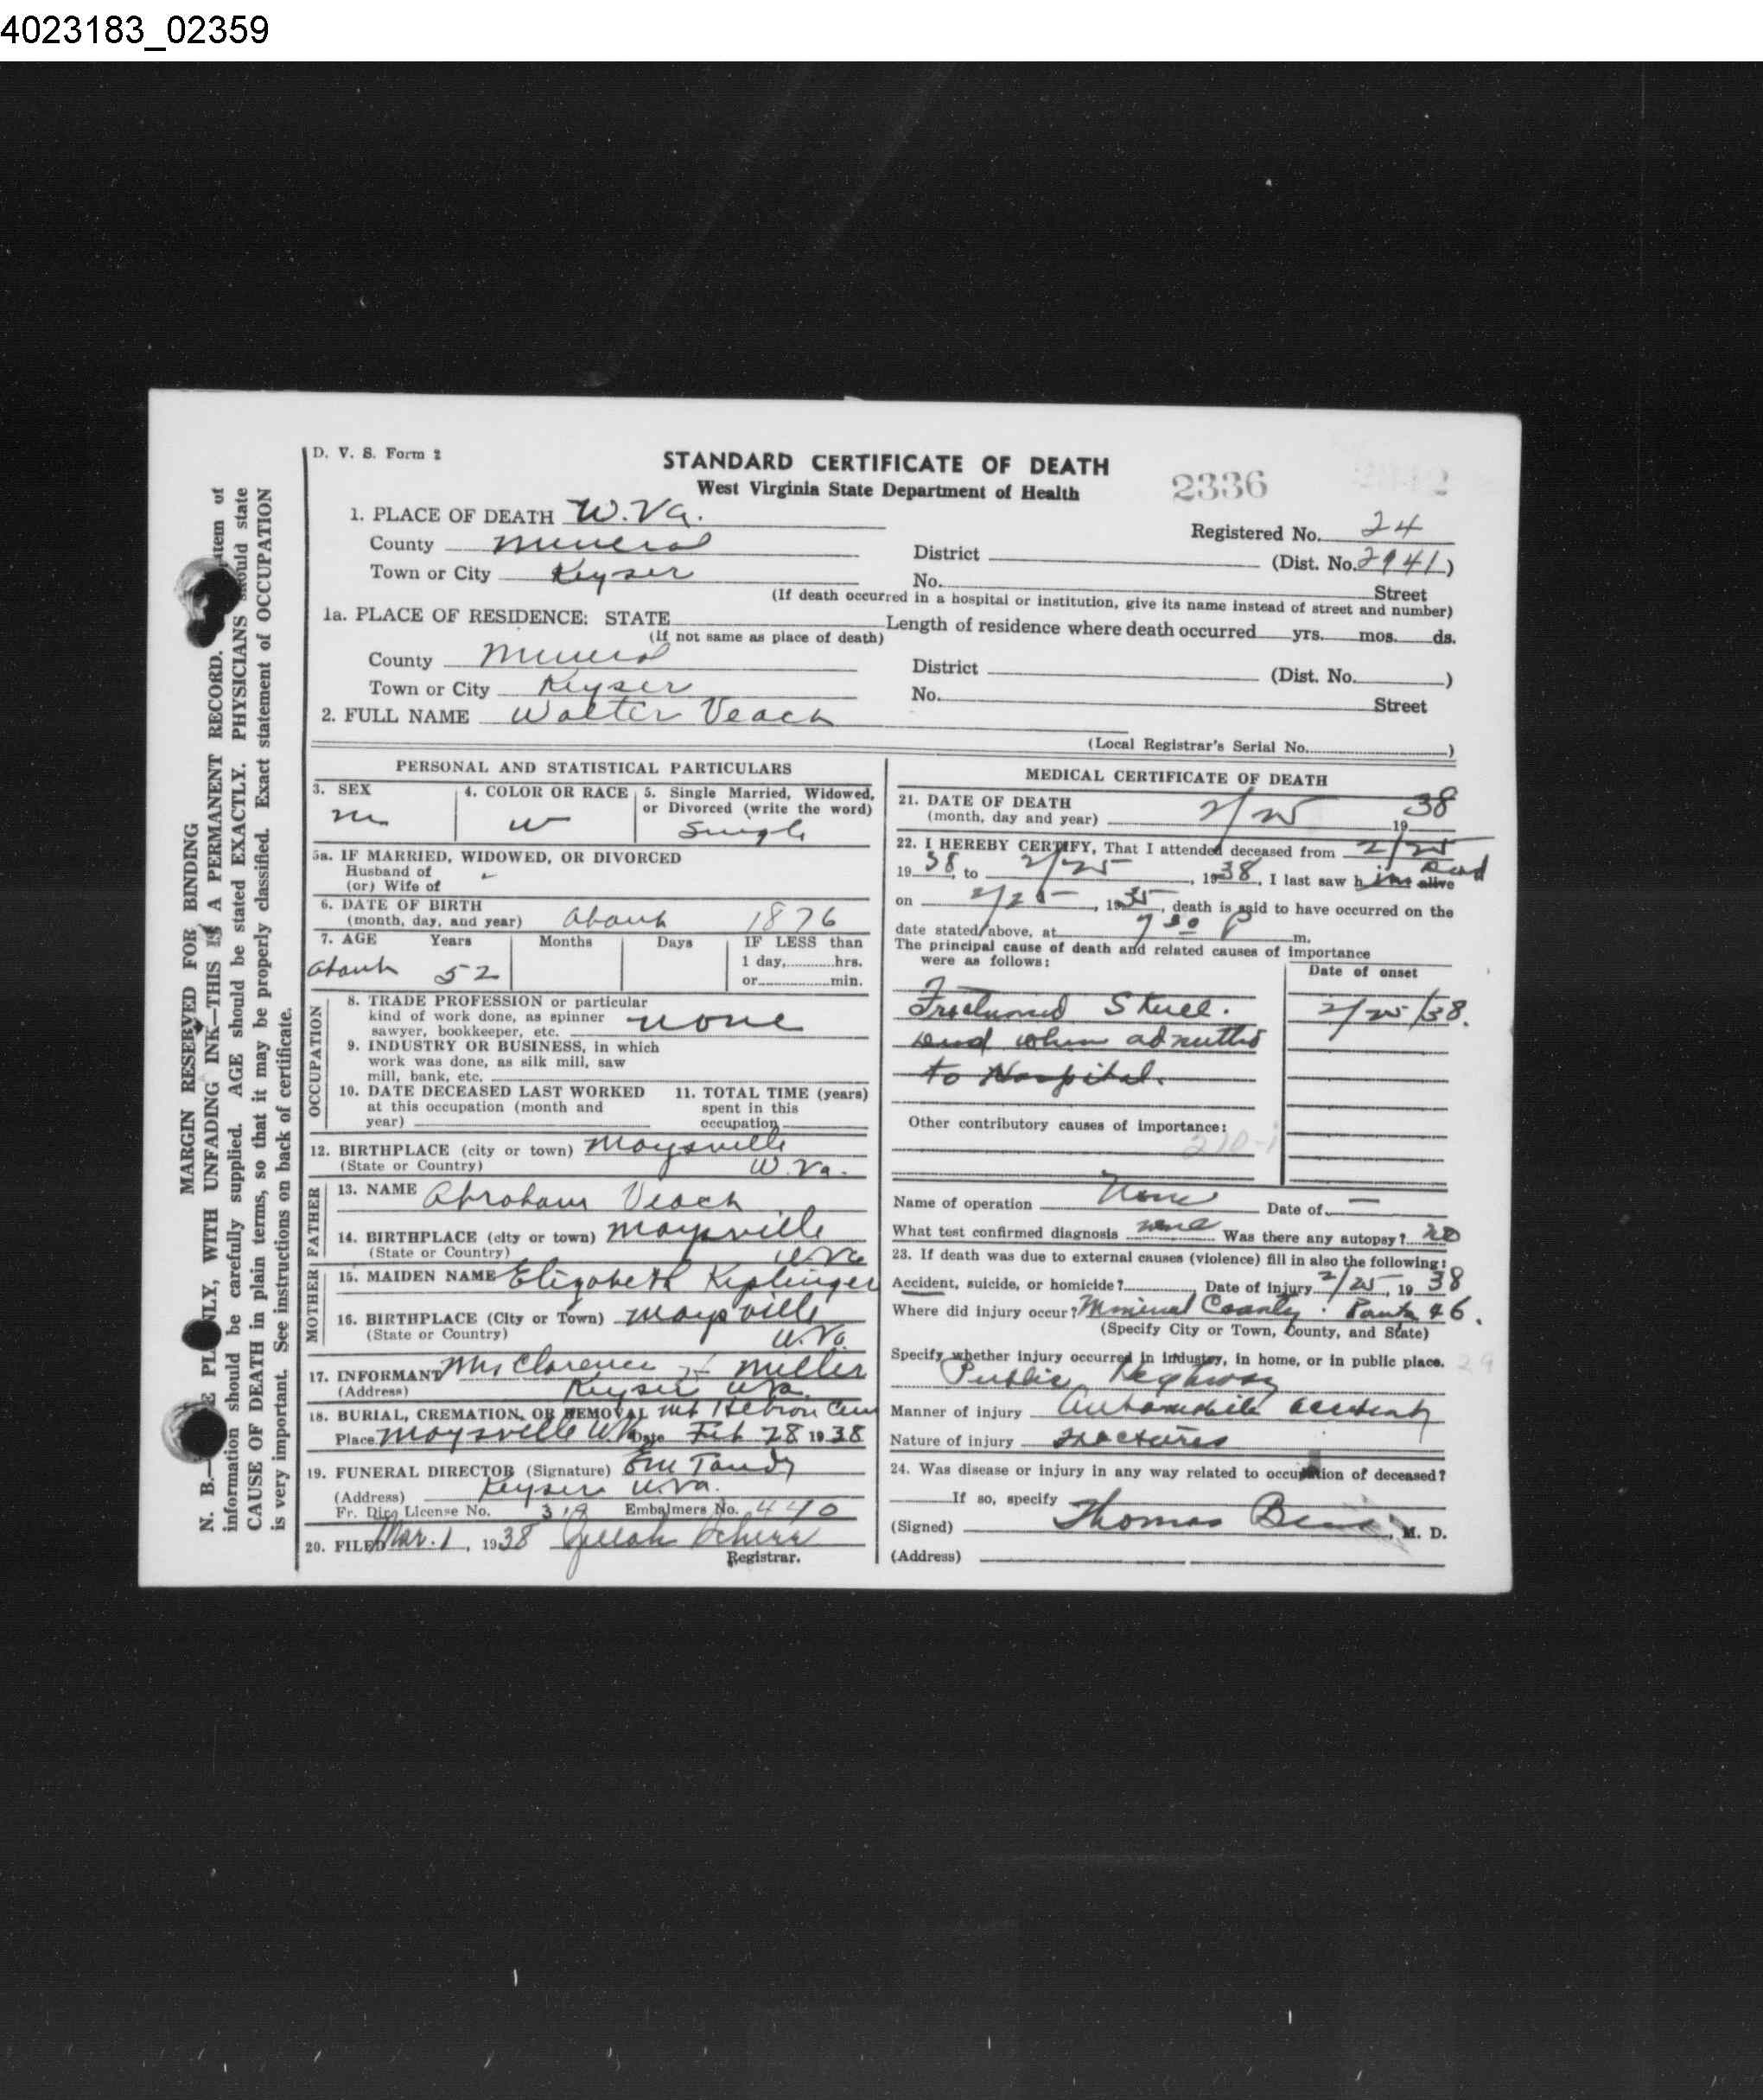 4023183_02359
D. V. S. Form 2
STANDARD CERTIFICATE OF DEATH
West Virginia State Department of Health
2336
1. PLACE OF DEATH W.Va.
Registered No. 24
County Mineral
District (Dist. No. 2941)
Town or City Keyser
No. Street
(If death occurred in a hospital or institution, give its name instead of street and number)
1a. PLACE OF RESIDENCE: STATE
(If not same as place of death)
Length of residence where death occurred yrs. mos. ds.
County Mineral
District (Dist. No. )
Town or City Keyser
No. Street
2. FULL NAME Walter Veach
(Local Registrar's Serial No. )
PERSONAL AND STATISTICAL PARTICULARS
3. SEX
m
4. COLOR OR RACE
w
5. Single Married, Widowed,
or Divorced (write the word)
Single
5a. IF MARRIED, WIDOWED, OR DIVORCED
Husband of
(or) Wife of
6. DATE OF BIRTH
(month, day, and year) about 1876
7. AGE Years Months Days IF LESS than
1 day, hrs.
or min.
about 52
OCCUPATION
8. TRADE PROFESSION or particular
kind of work done, as spinner
sawyer, bookkeeper, etc. none
9. INDUSTRY OR BUSINESS, in which
work was done, as silk mill, saw
mill, bank, etc.
10. DATE DECEASED LAST WORKED
at this occupation (month and
year)
11. TOTAL TIME (years)
spent in this
occupation
12. BIRTHPLACE (city or town) Maysville
(State or Country) W.Va.
FATHER
13. NAME Abraham Veach
14. BIRTHPLACE (city or town) Maysville
(State or Country) W.Va
MOTHER
15. MAIDEN NAME Elizabeth Kiplinger
16. BIRTHPLACE (City or Town) Maysville
(State or Country) W.Va.
17. INFORMANT Mrs Clarence F Miller
(Address) Keyser W.Va.
18. BURIAL, CREMATION, OR REMOVAL Mt Hebron Cem
Place Maysville W.Va Date Feb 28 1938
19. FUNERAL DIRECTOR (Signature) EM Tandy
(Address) Keyser W.Va.
Fr. Dirc License No. Embalmers No. 440
20. FILED Mar. 1, 1938
Registrar.
MEDICAL CERTIFICATE OF DEATH
21. DATE OF DEATH
(month, day and year) 2/25 1938
22. I HEREBY CERTIFY, That I attended deceased from 2/25
1938, to 2/25, 1938, I last saw him alive Dead
on 2/25, 1935, death is said to have occurred on the
date stated above, at 7 30 P m.
The principal cause of death and related causes of importance
were as follows:
Date of onset
Fractured Skull. 2/25/38.
Dead when admitted
to Hospital.
Other contributory causes of importance:
210-
Name of operation None Date of —
What test confirmed diagnosis none Was there any autopsy? no
23. If death was due to external causes (violence) fill in also the following:
Accident, suicide, or homicide? Date of injury 2/25, 1938
Where did injury occur? Mineral County. Route 46.
(Specify City or Town, County, and State)
Specify whether injury occurred in industry, in home, or in public place. 29
Public Highway
Manner of injury Automobile accident
Nature of injury Fractures
24. Was disease or injury in any way related to occupation of deceased?
If so, specify
(Signed) Thomas , M. D.
(Address)
MARGIN RESERVED FOR BINDING
N. B.— PLAINLY, WITH UNFADING INK—THIS IS A PERMANENT RECORD. item of
information should be carefully supplied. AGE should be stated EXACTLY. PHYSICIANS should state
CAUSE OF DEATH in plain terms, so that it may be properly classified. Exact statement of OCCUPATION
is very important. See instructions on back of certificate.